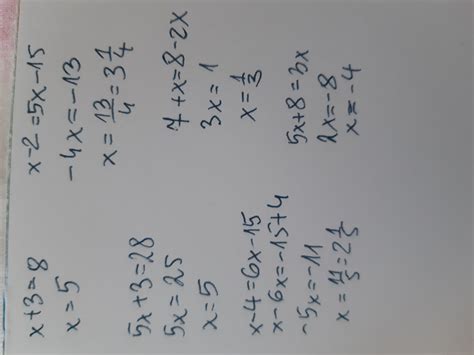 x+3=8
x=5
5x+3=28
5x=25
x=5
x-4=6x-15
x-6x=-15+4
-5x=-11
x=11/5=2 1/5
x-2=5x-15
-4x=-13
x=13/4=3 1/4
7+x=8-2x
3x=1
x=1/3
5x+8=3x
2x=-8
x=-4